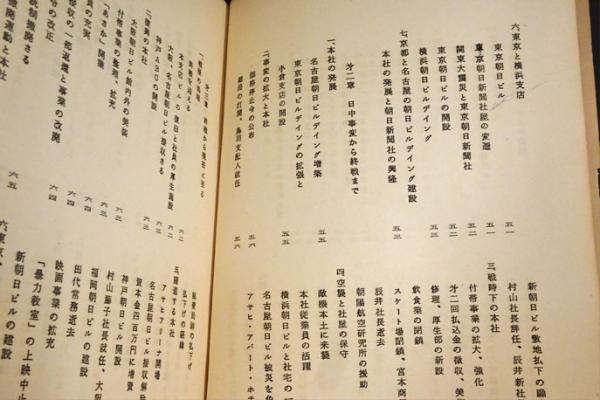 六、東京と横浜支店
東京朝日ビル 五一
東京朝日新聞社屋の変遷 五一
関東大震災と東京朝日新聞社
東京朝日ビルの開設
横浜朝日ビルディング
七、京都と名古屋の朝日ビルディング建設 五三
本社の発展と朝日新聞社の興隆
才二章 日中事変から終戦まで
一、本社の発展
名古屋朝日ビルディング増築 五五
東京朝日ビルディングの拡張と
小倉支店の開設 五五
二、事変の拡大と本社
価格停止令の公布 五六
新朝日ビル敷地払下の願
村山社長辞任、辰井新社
三、戦時下の本社
付帯事業の拡大、強化
才二回払込金の徴収、美
修理、厚生部の新設
飲食業の閉鎖
スケート場閉鎖、宮本商
辰井社長逝去
朝陽航空研究所の援助
四、空襲と社屋の保守
敵機本土に来襲
本社従業員の活躍
横浜朝日ビルと社宅の
名古屋朝日ビル被災を免
アサヒ・アパート・ホテ
本支店ビルの復旧と社員の厚生施設
大阪、名古屋朝日ビル接収さる
神戸ABCの開設
二、復興の本社
大阪朝日ビル館内外の美装
付帯事業の整理、拡充
「あさか」開業
員の充実
接収の一部返還と事業の改廃
の改正
統制撤廃さる
撤廃運動と本社
五、躍進する本社
アサヒアリーナ開場
名古屋朝日ビル接収解除
資本金四百万円に増資
神戸朝日ビル開設
村山藤子社長就任、大阪
福岡朝日ビルの建設
田代常務逝去
映画事業の拡充
「暴力教室」の上映中止
新朝日ビルの建設
六、東京、